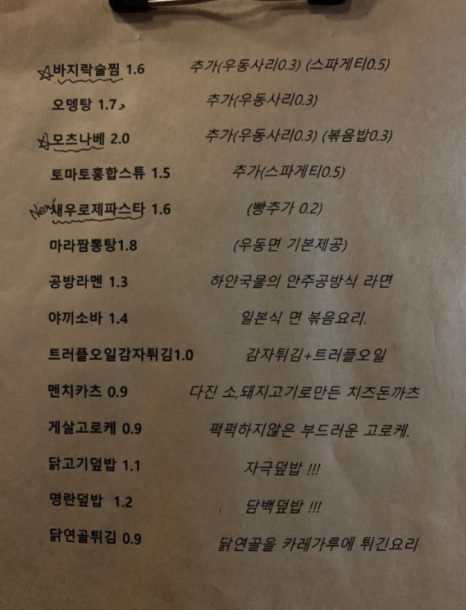 ☆바지락술찜 1.6 추가(우동사리0.3) (스파게티0.5)
오뎅탕 1.7 추가(우동사리0.3)
☆모츠나베 2.0 추가(우동사리0.3) (볶음밥0.3)
토마토홍합스튜 1.5 추가(스파게티0.5)
New 새우로제파스타 1.6 (빵추가 0.2)
마라짬뽕탕1.8 (우동면 기본제공)
공방라멘 1.3 하얀국물의 안주공방식 라면
야끼소바 1.4 일본식 면 볶음요리.
트러플오일감자튀김1.0 감자튀김+트러플오일
멘치카츠 0.9 다진 소,돼지고기로만든 치즈돈까츠
게살고로케 0.9 퍽퍽하지않은 부드러운 고로케.
닭고기덮밥 1.1 자극덮밥 !!!
명란덮밥 1.2 담백덮밥 !!!
닭연골튀김 0.9 닭연골을 카레가루에 튀긴요리